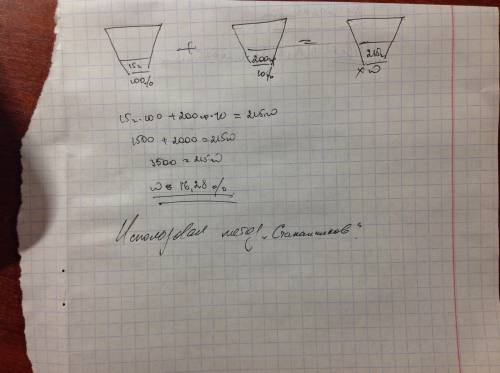 15г + 200г = 215г
100% 10% x w
15г·100 + 200г·10 = 215w
1500 + 2000 = 215w
3500 = 215w
w = 16,28 %
Использовал метод „Стаканчиков“.